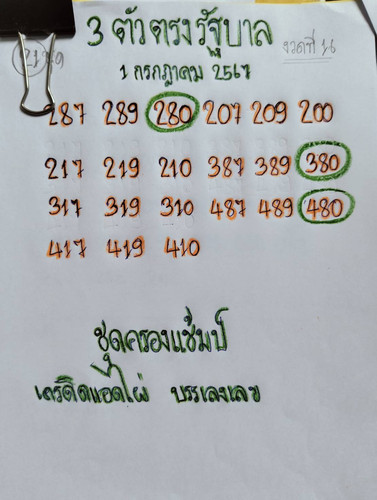 3 ตัวตรงรัฐบาล
งวดที่ 16
1 กรกฎาคม 2567
287 289 280 207 209 200
217 219 210 387 389 380
317 319 310 487 489 480
417 419 410
ชุดครองแช้มป์
เครดิตแอดไผ่ บรรเลงเลข